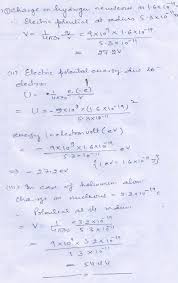 i) Charge on hydrogen nucleus = 1.6×10⁻¹⁹
∴ Electric potential at radius 5.3×10⁻¹¹
V = 1/4πε₀ q/r = 9×10⁹ × 1.6×10⁻¹⁹
5.3×10⁻¹¹
= 27.2V
(ii) Electric potential energy due to
electron
U = 1/4πε₀ e·(-e)/r
U = -9×10⁹×(1.6×10⁻¹⁹)²
5.3×10⁻¹¹
energy in electron volt (eV)
= -9×10⁹×1.6×10⁻¹⁹ eV
5.3×10⁻¹¹
⇒ -27.2eV
(iii) In case of helium atom
charge on nucleus = 3.2×10⁻¹⁹
∴ Potential at its radius
V = 1/4πε₀ × 3.2×10⁻¹⁹
5.3×10⁻¹¹
= 9×10⁹×3.2×10⁻¹⁹
5.3×10⁻¹¹
= 54.4V